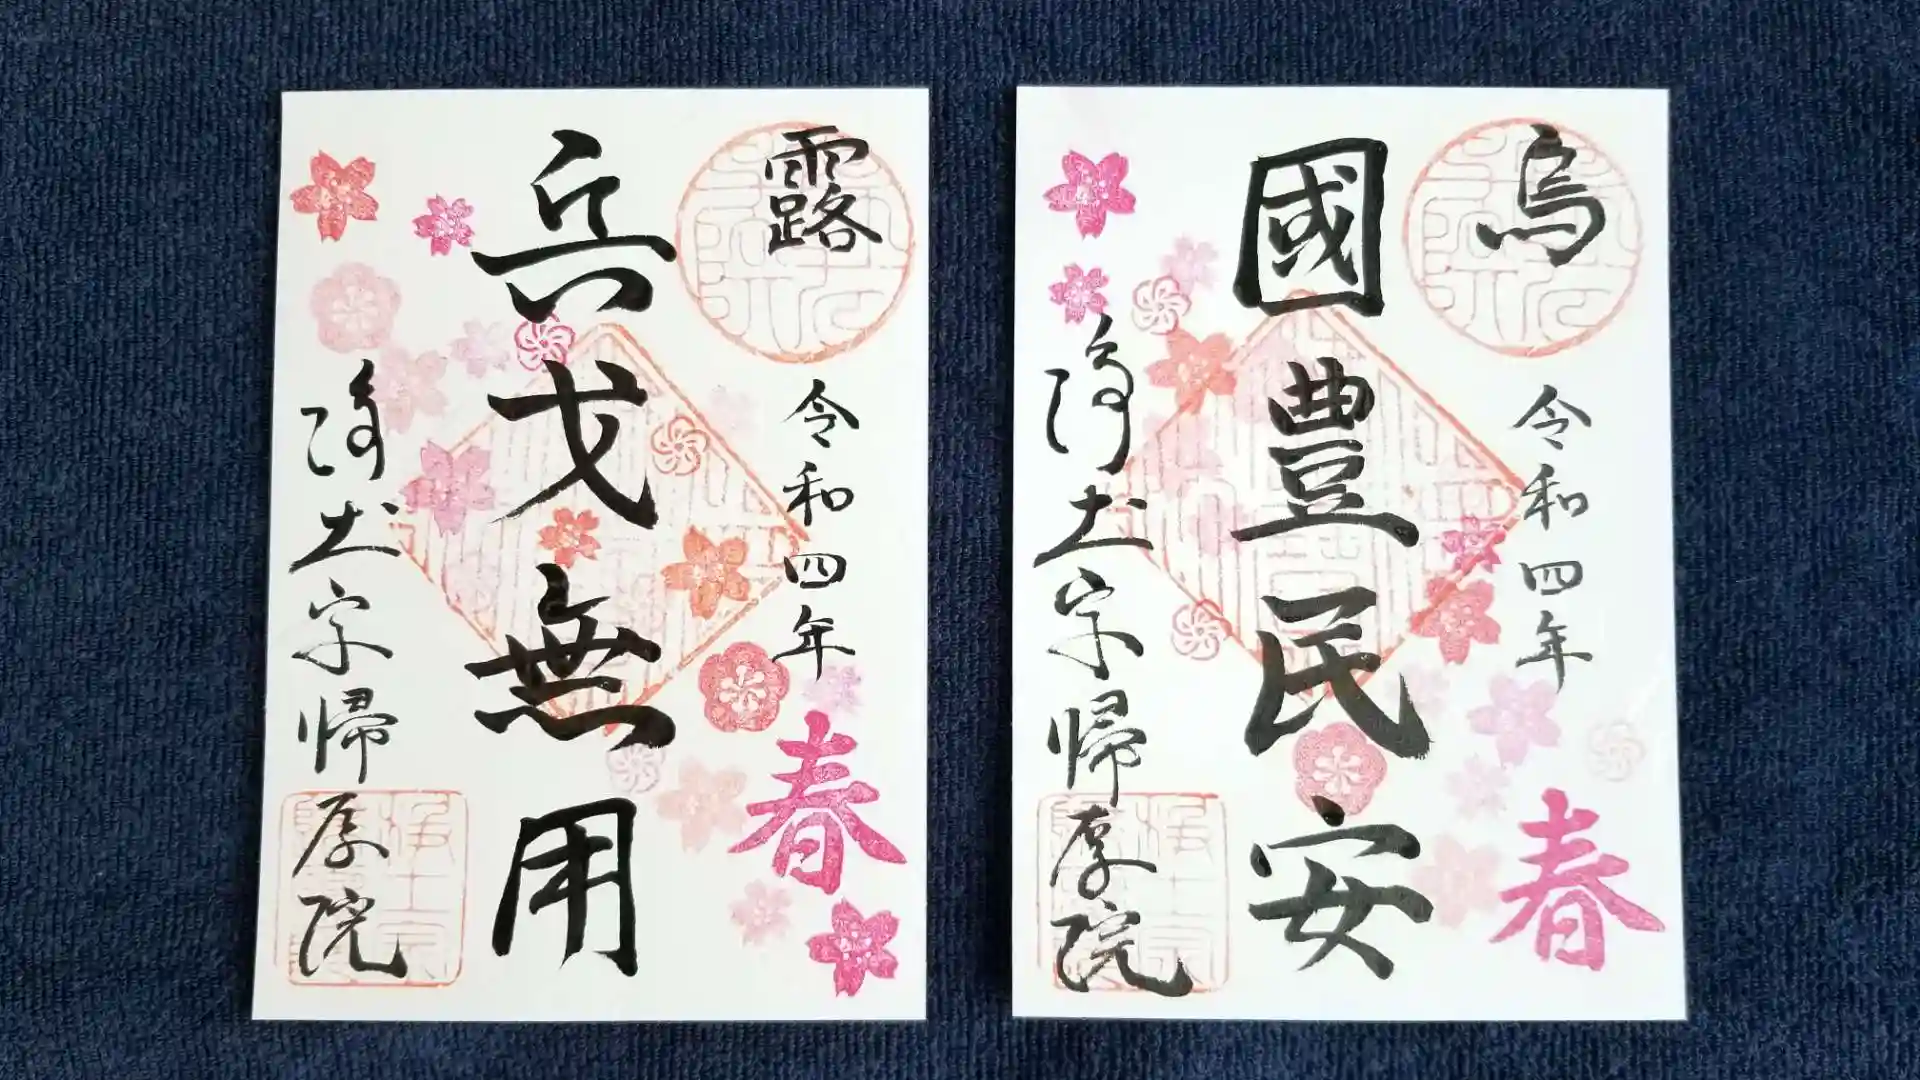 烏
令和四年
春
國豊民安
浄土宗帰厚院
露
令和四年
春
兵戈無用
浄土宗帰厚院